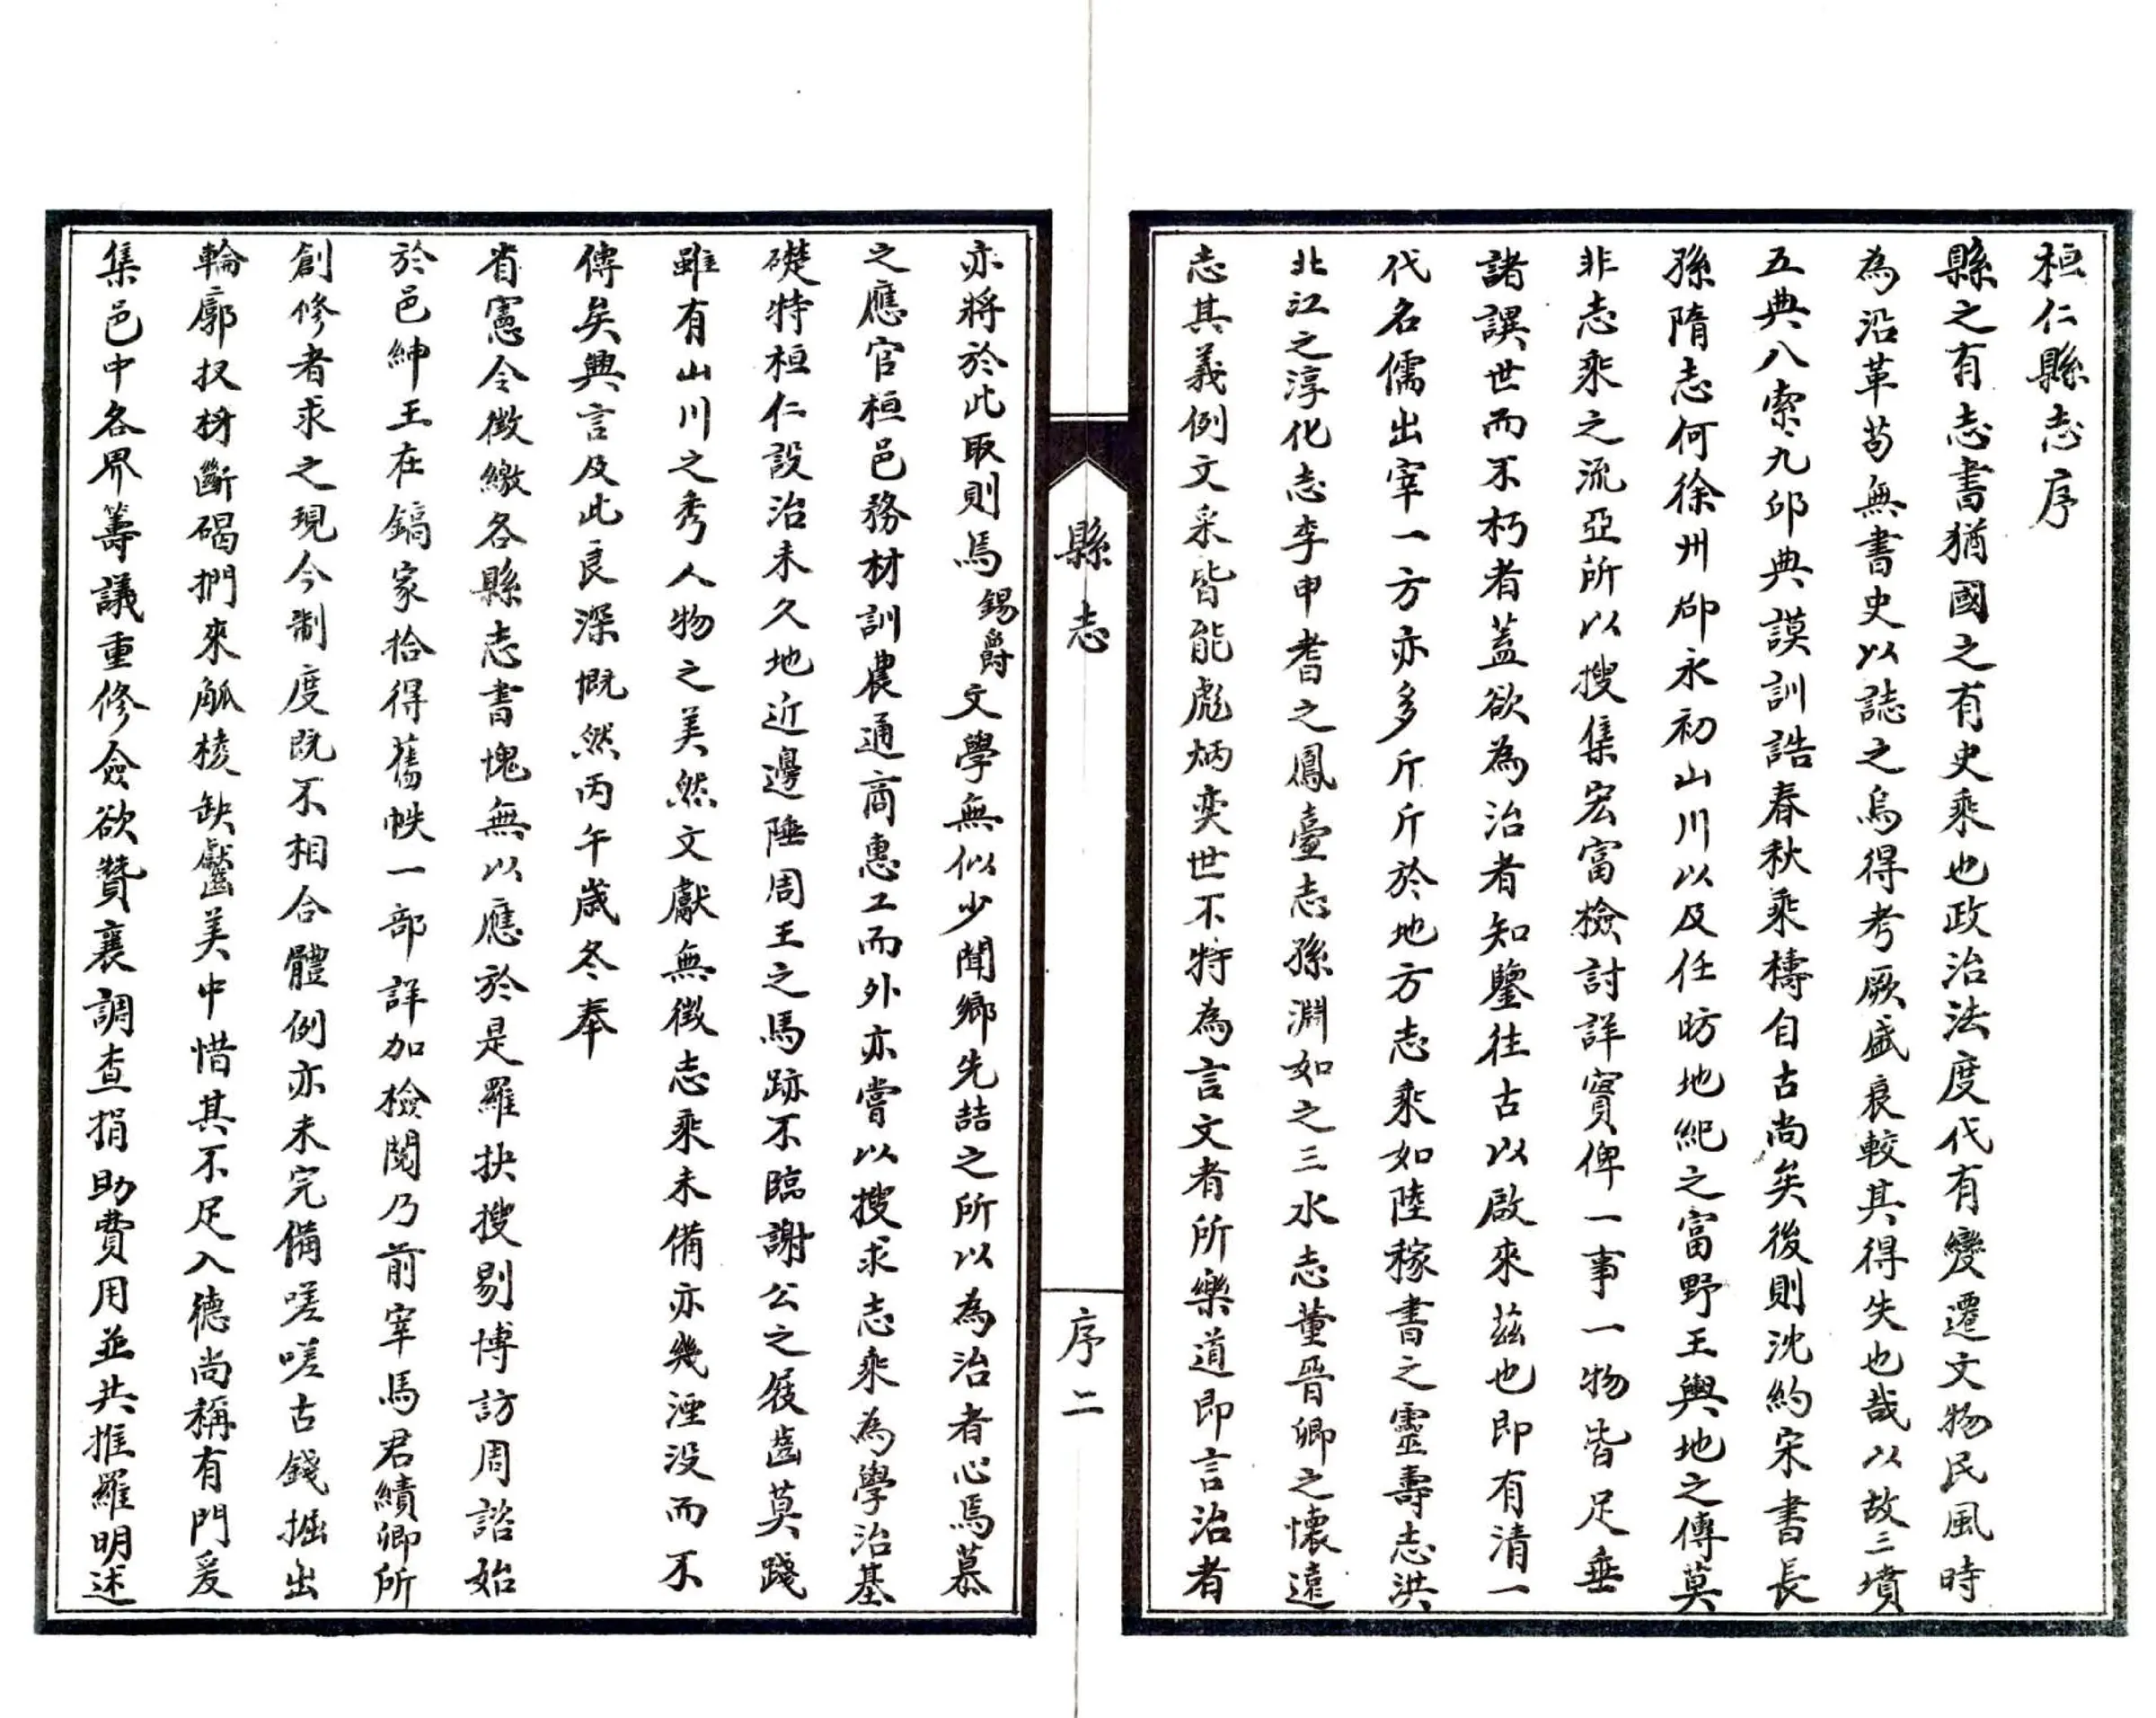 桓仁縣志序
縣之有志書猶國之有史乘也政治法度代有變遷文物民風時
為沿革苟無書史以誌之烏得考厥盛衰較其得失也哉以故三墳
五典八索九邱典謨訓誥春秋乘檮自古尚矣後則沈約宋書長
孫隋志何徐州郡永初山川以及任昉地紀之富野王輿地之傳莫
非志乘之流亞所以搜集宏富檢討詳實俾一事一物皆足垂
諸譔世而不朽者蓋欲為治者知鑒往古以啟來茲也即有清一
代名儒出宰一方亦多斤斤於地方志乘如陸稼書之靈壽志洪
北江之淳化志李申耆之鳳臺志孫淵如之三水志董晉卿之懷遠
志其義例文采皆能彪炳奕世不特為言文者所樂道即言治者
縣志
序二
亦將於此取則焉錫爵文學無似少聞鄉先喆之所以為治者心焉慕
之應官桓邑務材訓農通商惠工而外亦嘗以搜求志乘為學治基
礎特桓仁設治未久地近邊陲周王之馬跡不臨謝公之屐齒莫踐
雖有山川之秀人物之美然文獻無徵志乘未備亦幾湮没而不
傳矣興言及此良深慨然丙午歲冬奉
省憲令徵繳各縣志書愧無以應於是羅抉搜剔博訪周諮始
於邑紳王在鎬家拾得舊帙一部詳加檢閱乃前宰馬君績卿所
創修者求之現今制度既不相合體例亦未完備嗟嗟古錢掘出
輪廓折斷碣捫來觚棱缺齾美中惜其不足入德尚稱有門爰
集邑中各界籌議重修僉欲贊襄調查捐助費用並共推羅明述